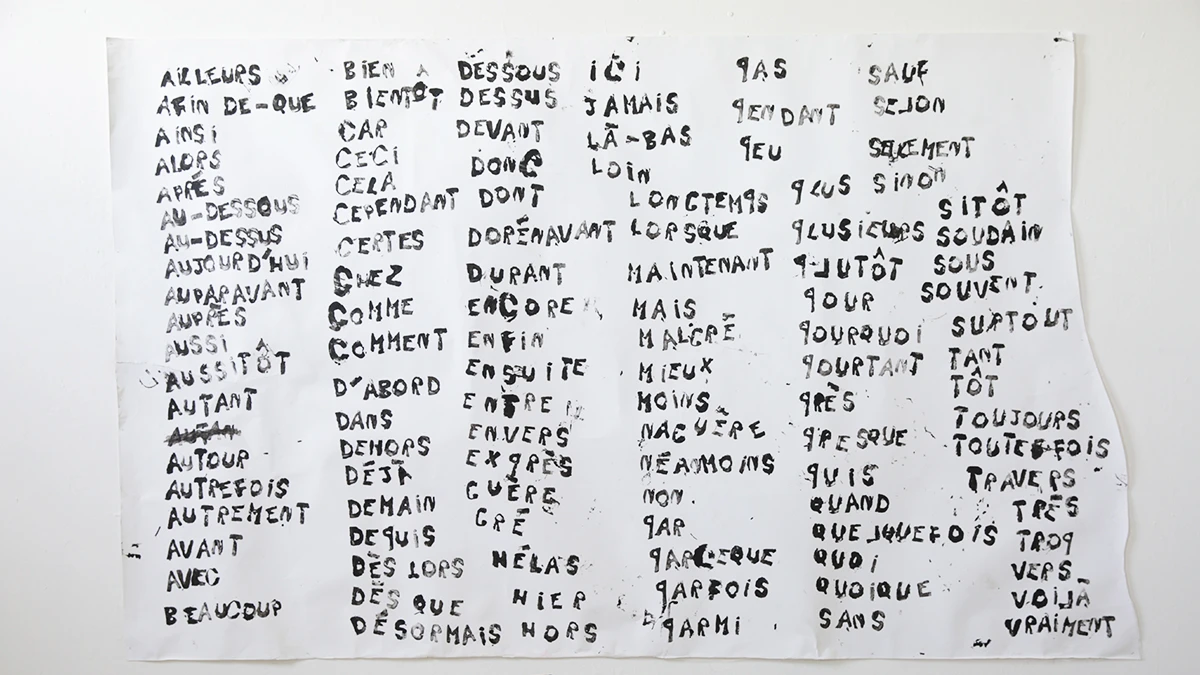 AILLEURS
AFIN DE-QUE
AINSI
ALORS
APRÈS
AU-DESSOUS
AU-DESSUS
AUJOURD'HUI
AUPARAVANT
AUPRÈS
AUSSI
AUSSITÔT
AUTANT
AUTAN
AUTOUR
AUTREFOIS
AUTREMENT
AVANT
AVEC
BEAUCOUP
BIEN
BIENTÔT
CAR
CECI
CELA
CEPENDANT
CERTES
CHEZ
COMME
COMMENT
D'ABORD
DANS
DEHORS
DÉJÀ
DEMAIN
DEPUIS
DÈS LORS
DÈS QUE
DÉSORMAIS
DÉSSOUS
DESSUS
DEVANT
DONC
DONT
DORÉNAVANT
DURANT
ENCORE
ENFIN
ENSUITE
ENTRE
ENVERS
EXPRÈS
GUÈRE
GRÉ
HÉLAS
HIER
HORS
ICI
JAMAIS
LÀ-BAS
LOIN
LONGTEMPS
LORSQUE
MAINTENANT
MAIS
MALGRÉ
MIEUX
MOINS
NAGUÈRE
NÉANMOINS
NON
PAR
PARCEQUE
PARFOIS
PARMI
PAS
PENDANT
PEU
PLUS
PLUSIEURS
PLUTÔT
POUR
POURQUOI
POURTANT
PRÈS
PRESQUE
PUIS
QUAND
QUELQUEFOIS
QUOI
QUOIQUE
SANS
SAUF
SELON
SEULEMENT
SINON
SITÔT
SOUDAIN
SOUS
SOUVENT
SURTOUT
TANT
TÔT
TOUJOURS
TOUTEFOIS
TRAVERS
TRÈS
TROP
VERS
VOILÀ
VRAIMENT